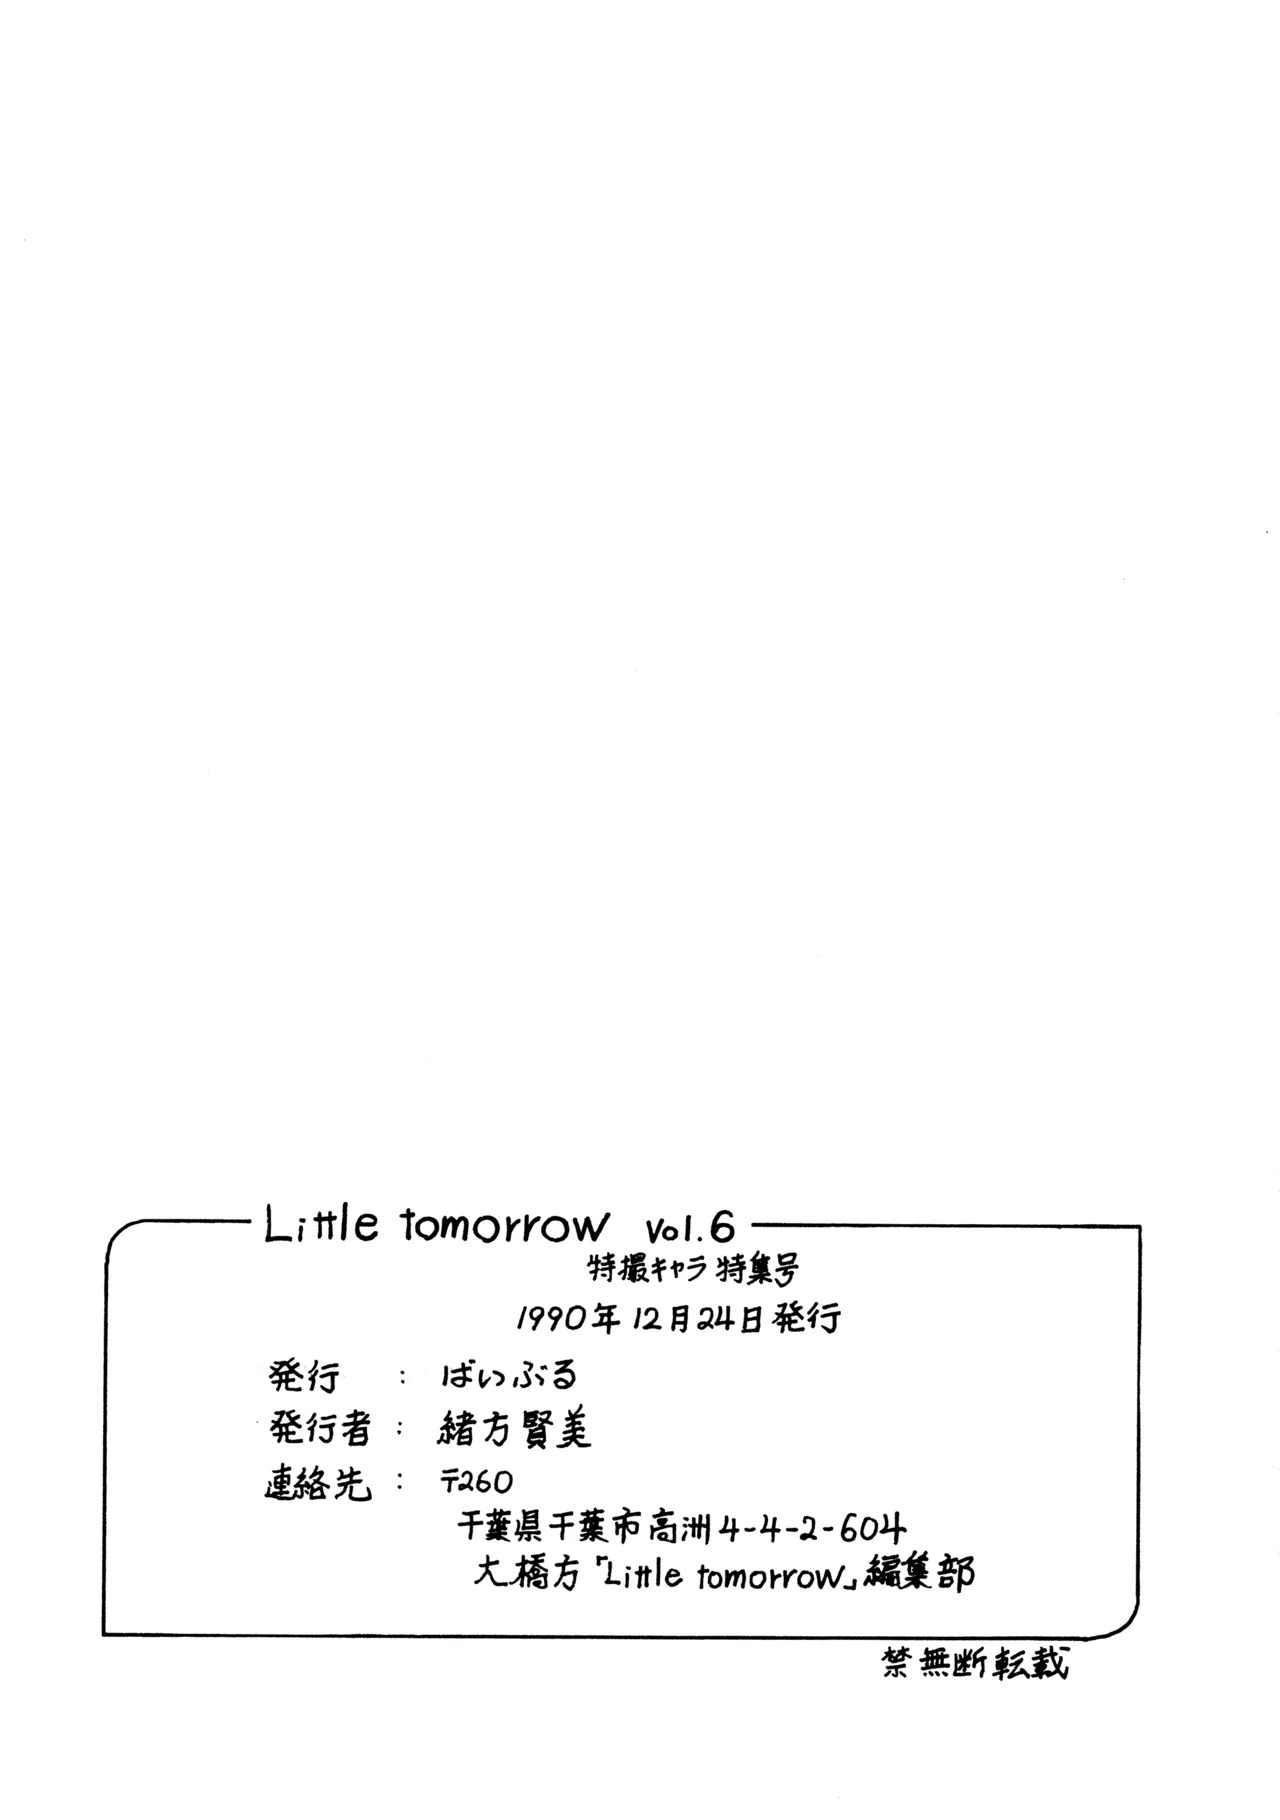 Little tomorrow vol.6
特撮キャラ特集号
1990年12月24日発行
発行 : ばいぶる
発行者 : 緒方賢美
連絡先 : 〒260
千葉県千葉市高洲4-4-2-604
大橋方「Little tomorrow」編集部
禁無断転載